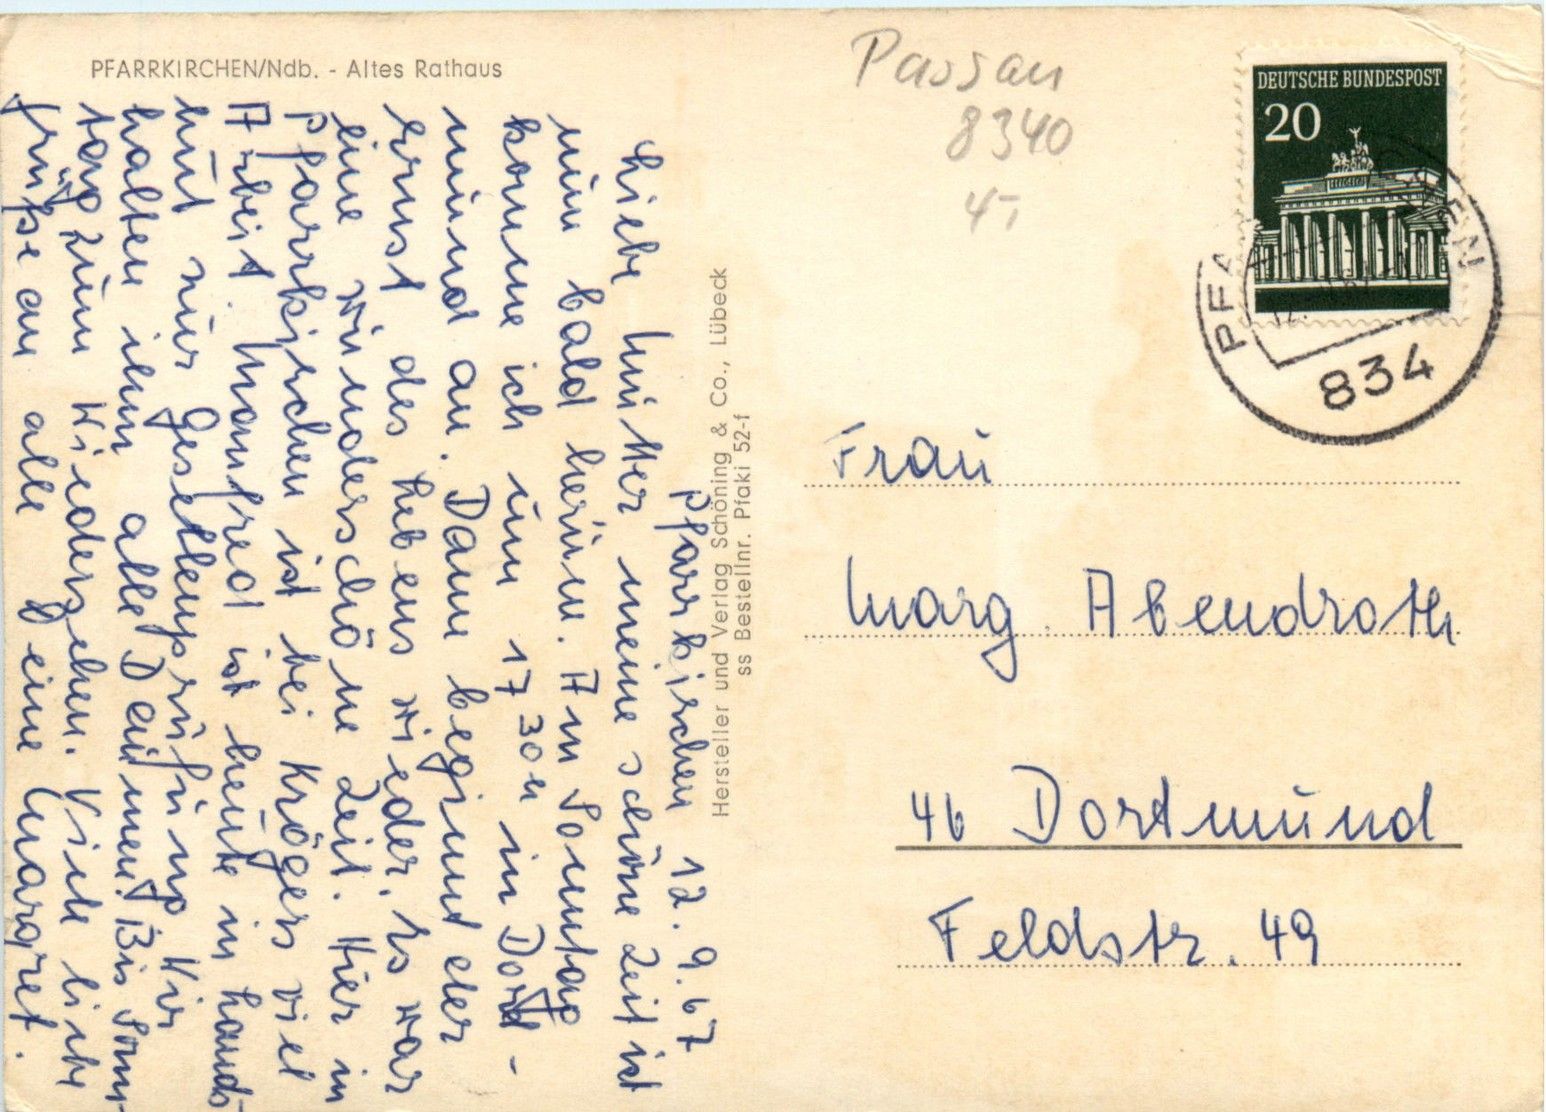 PFARRKIRCHEN/Ndb. - Altes Rathaus
Pfarrkirchen 12.9.67
Liebe Mutter meine schöne Zeit ist
nun bald herum. Am Sonntag
komme ich um 17 30 h in Dort-
mund an. Dann beginnt der
ernst des Lebens wieder. Es war
eine wunderschöne Zeit. Hier in
Pfarrkirchen ist bei Krögers viel
Arbeit. Manfred ist heute in Lands-
hut zur Gesellenprüfung. Wir
halten ihm alle Daumen. Bis Sonn-
tag zum Wiedersehen. Viele liebe
Grüße an alle Deine Margret.
Hersteller und Verlag Schöning & Co., Lübeck
ss Bestellnr. Pfaki 52-f
Passau
8340
4,-
DEUTSCHE BUNDESPOST
20
834
Frau
Marg. Abendroth
46 Dortmund
Feldstr. 49